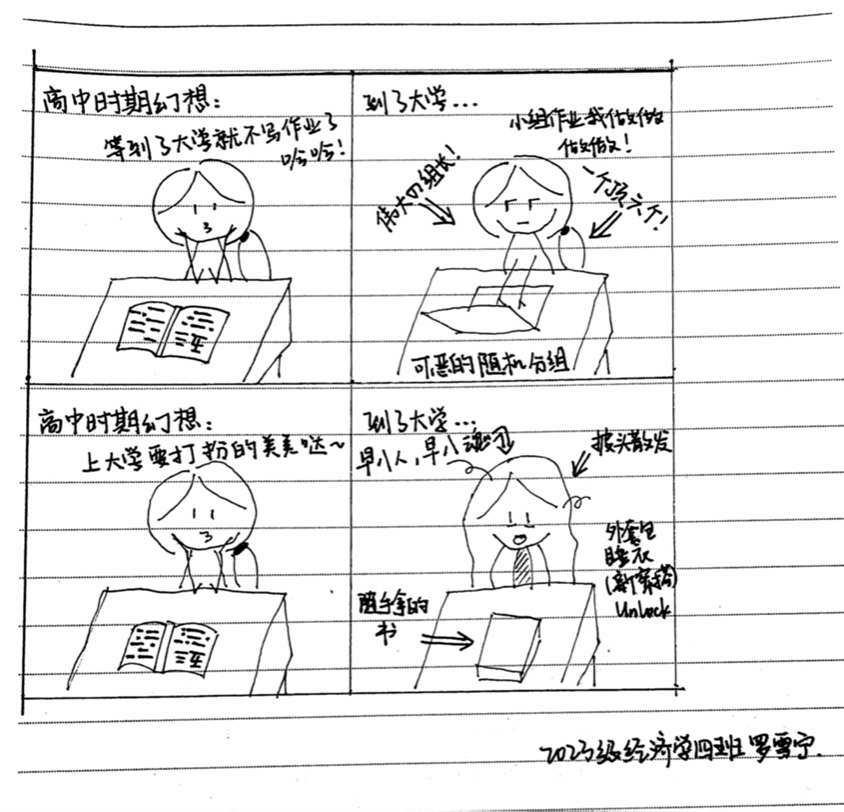 高中时期幻想：
等到了大学就不写作业了
哈哈！
到了大学...
小组作业我做做
做做！
伟大的组长！
一个顶六个！
可恶的随机分组
高中时期幻想：
上大学要打扮的美美哒~
到了大学...
早八人，早八魂
披头散发
外套包
睡衣
(新穿搭)
Unlock
随手拿的
书
2023级经济学四班罗雪宁.